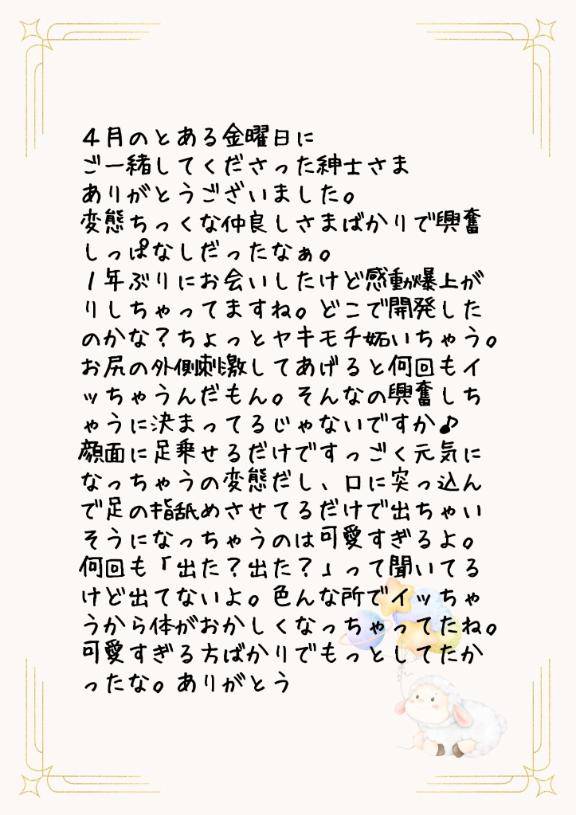 4月のとある金曜日に
ご一緒してくださった紳士さま
ありがとうございました。
変態ちっくな仲良しさまばかりで興奮
しっぱなしだったなぁ。
1年ぶりにお会いしたけど感動爆上が
りしちゃってますね。どこで開発した
のかな?ちょっとヤキモチ妬いちゃう。
お尻の外側刺激してあげると何回もイ
ッちゃうんだもん。そんなの興奮しち
ゃうに決まってるじゃないですか♪
顔面に足乗せるだけですっごく元気に
なっちゃうの変態だし、口に突っ込ん
で足の指舐めさせてるだけで出ちゃい
そうになっちゃうのは可愛すぎるよ。
何回も「出た?出た?」って聞いてる
けど出てないよ。色んな所でイッちゃ
うから体がおかしくなっちゃってたね。
可愛すぎる方ばかりでもっとしてたか
ったな。ありがとう